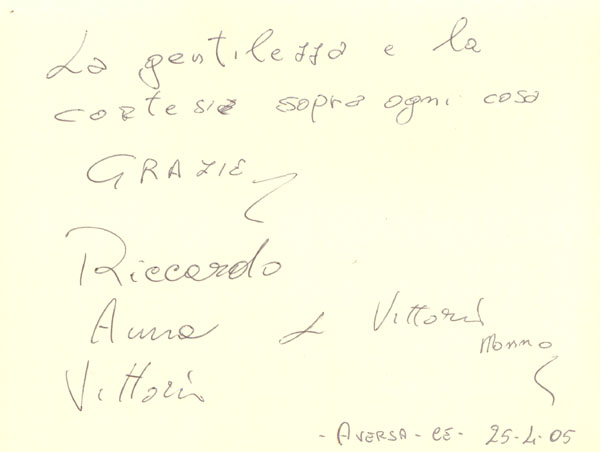 La gentilezza e la
cortesia sopra ogni cosa
GRAZIE
Riccardo
Anna & Vittorio
Nonno
Vittorio
- AVERSA - CE - 25-4-05